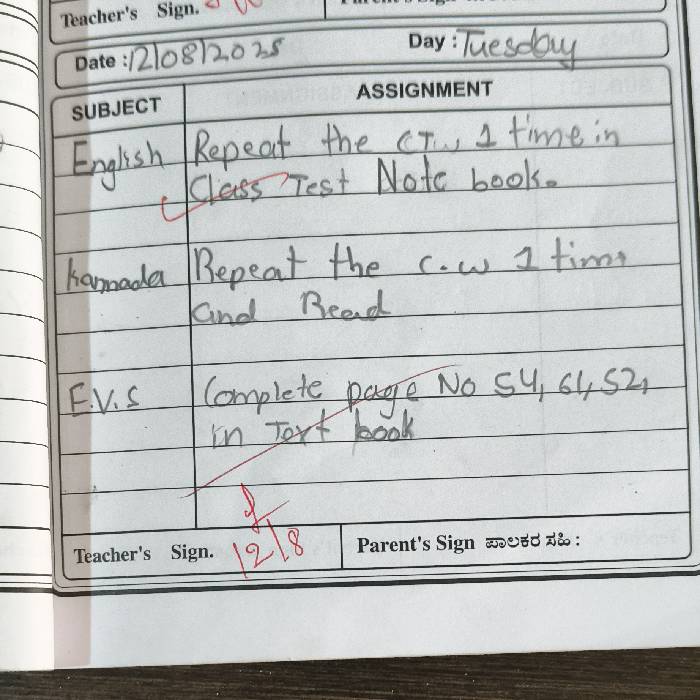 Teacher's Sign.
Date : 12/08/2025 Day : Tuesday
SUBJECT ASSIGNMENT
English Repeat the C.T.W 1 time in
Class Test Note book.
Kannada Repeat the C.W 1 time
and Read
E.V.S Complete page No 54, 61, 52,
in Text book
Teacher's Sign. 12/8 Parent's Sign ಪಾಲಕರ ಸಹಿ :